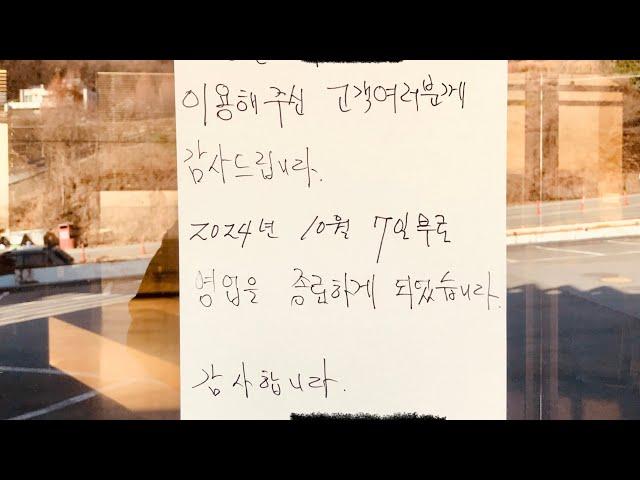 이용해주신 고객여러분게
감사드립니다.
2024년 10월 7일부로
영업을 종료하게 되었습니다.
감사합니다.